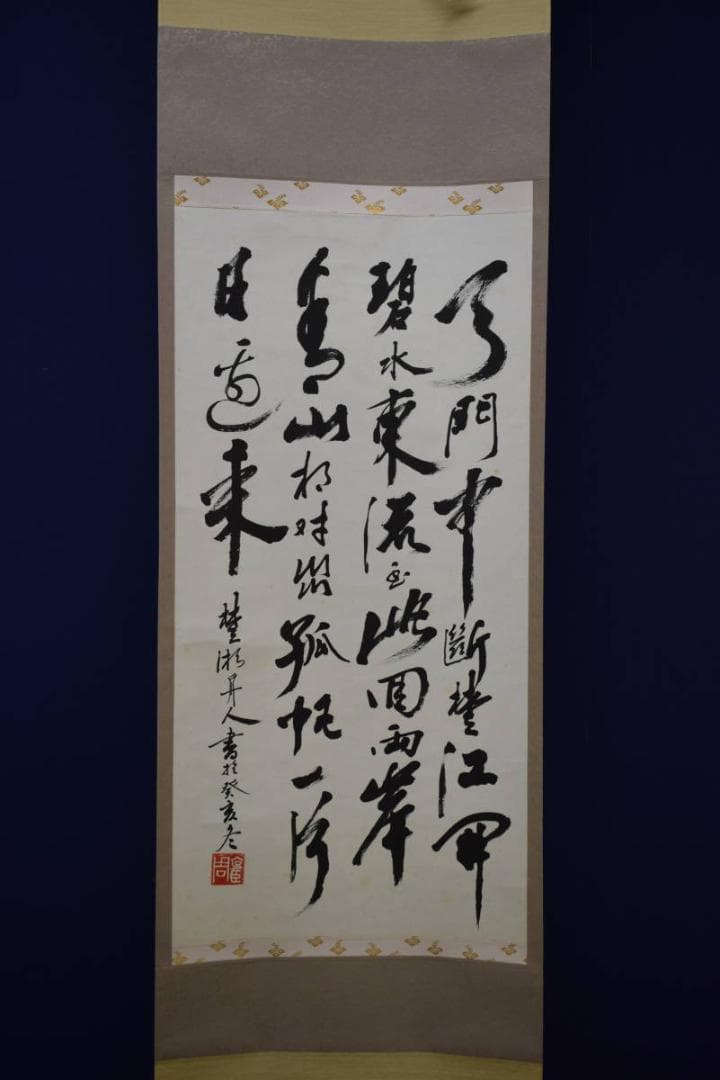 天門中斷楚江開
碧水東流至此回兩岸
青山相对出孤帆一片
日邊来
楚湘人書於癸亥冬